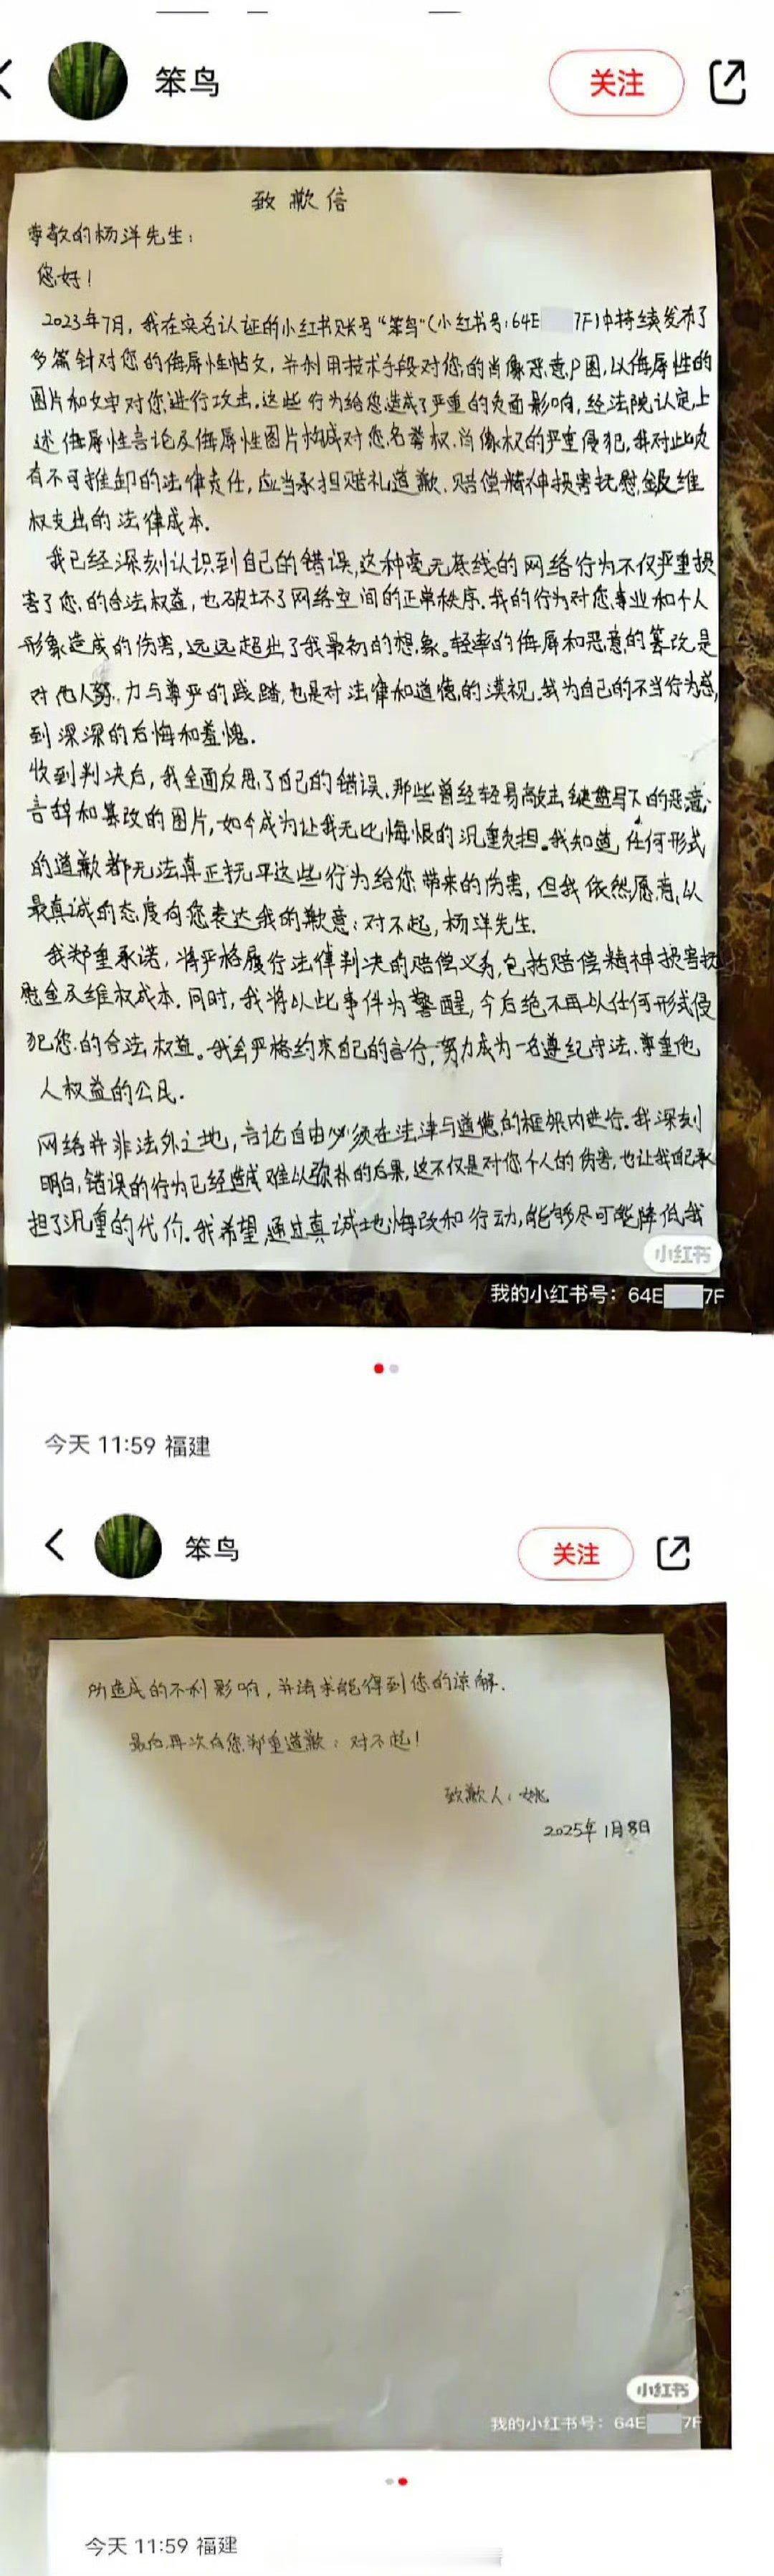 笨鸟
关注
致歉信
尊敬的杨洋先生：
您好！
2023年7月，我在实名认证的小红书账号“笨鸟”（小红书号：64E 7F）中持续发布了
多篇针对您的侮辱性帖文，并利用技术手段对您的肖像恶意P图，以侮辱性的
图片和文字对您进行攻击。这些行为给您造成了严重的负面影响，经法院认定，上
述侮辱性言论及侮辱性图片构成对您名誉权、肖像权的严重侵犯，我对此负
有不可推卸的法律责任，应当承担赔礼道歉、赔偿精神损害抚慰金及维
权支出的法律成本。
我已经深刻认识到自己的错误，这种毫无底线的网络行为不仅严重损
害了您的合法权益，也破坏了网络空间的正常秩序。我的行为对您事业和个人
形象造成的伤害，远远超出了我最初的想象。轻率的侮辱和恶意的篡改是
对他人努力与尊严的践踏，也是对法律和道德的漠视。我为自己的不当行为感
到深深的后悔和羞愧。
收到判决后，我全面反思了自己的错误。那些曾经轻易敲击键盘写下的恶意
言辞和篡改的图片，如今成为让我无比悔恨的沉重负担。我知道，任何形式
的道歉都无法真正抚平这些行为给您带来的伤害，但我依然愿意以
最真诚的态度向您表达我的歉意：对不起，杨洋先生。
我郑重承诺，将严格履行法律判决的赔偿义务，包括赔偿精神损害抚
慰金及维权成本。同时，我将以此事件为警醒，今后绝不再以任何形式侵
犯您的合法权益。我会严格约束自己的言行，努力成为一名遵纪守法、尊重他
人权益的公民。
网络并非法外之地，言论自由必须在法律与道德的框架内进行。我深刻
明白，错误的行为已经造成难以弥补的后果，这不仅是对您个人的伤害，也让我自己承
担了沉重的代价。我希望通过真诚地悔改和行动，能够尽可能降低我
小红书
我的小红书号：64E 7F
今天 11:59 福建
笨鸟
关注
所造成的不利影响，并请求能得到您的谅解。
最后再次向您郑重道歉：对不起！
致歉人：姚
2025年1月8日
小红书
我的小红书号：64E 7F
今天 11:59 福建